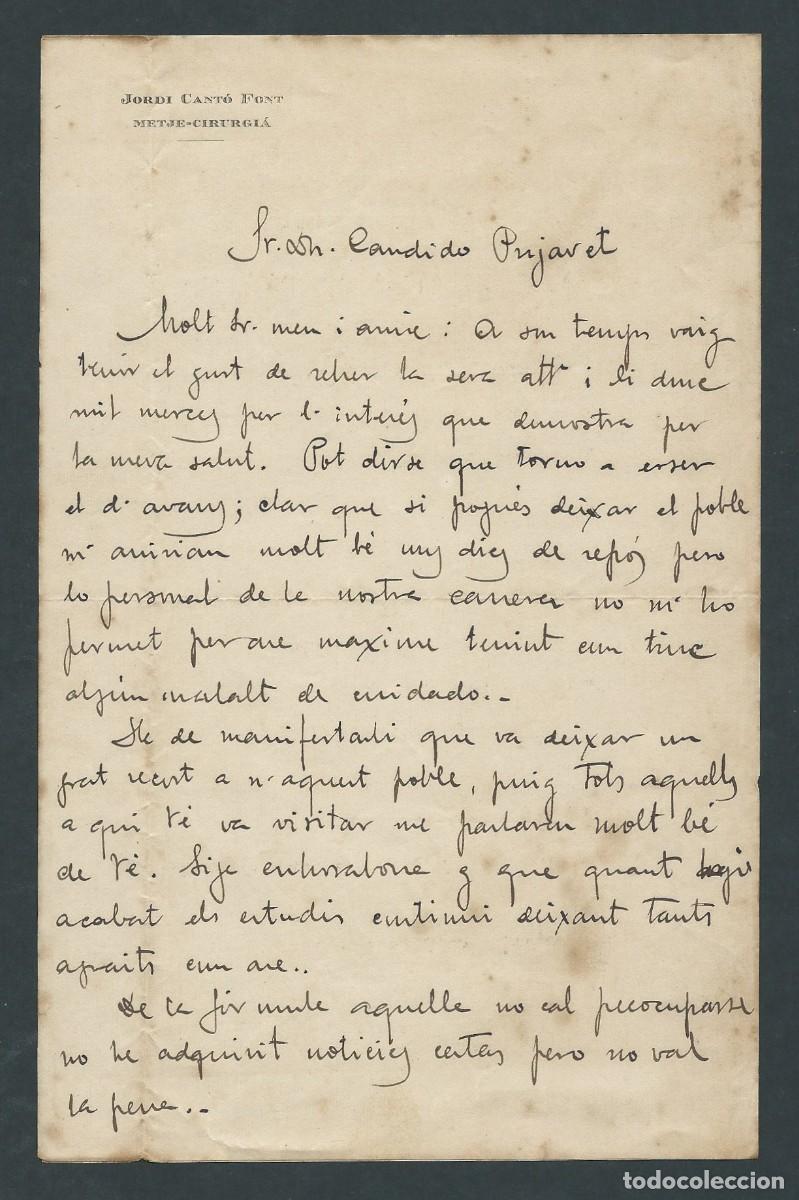 JORDI CANTÓ FONT
METJE-CIRURGIÁ
Sr. Dn. Candido Pujavet
Molt Sr. meu i amic: A son temps vaig
tenir el gust de rebrer la seva atta i li dinc
mil merces per l'interés que demostra per
la meva salut. Pot dirse que torno a esser
el d'avans; clar que si pogués deixar el poble
m'anirian molt bé uns dies de repós pero
lo personal de la nostra carrera no m'ho
permet perque maxime tenint com tinc
algún malalt de cuidado..
He de manifestarli que va deixar un
grat recort a n'aquest poble, puig tots aquells
a qui Vé va visitar me parlaren molt bé
de Vé. Sige enhorabona y que quant hagi
acabat els estudis continui deixant tants
agraits com are..
De la fórmula aquella no cal preocuparse
no he adquirit noticies certas pero no val
la pena..
todocoleccion